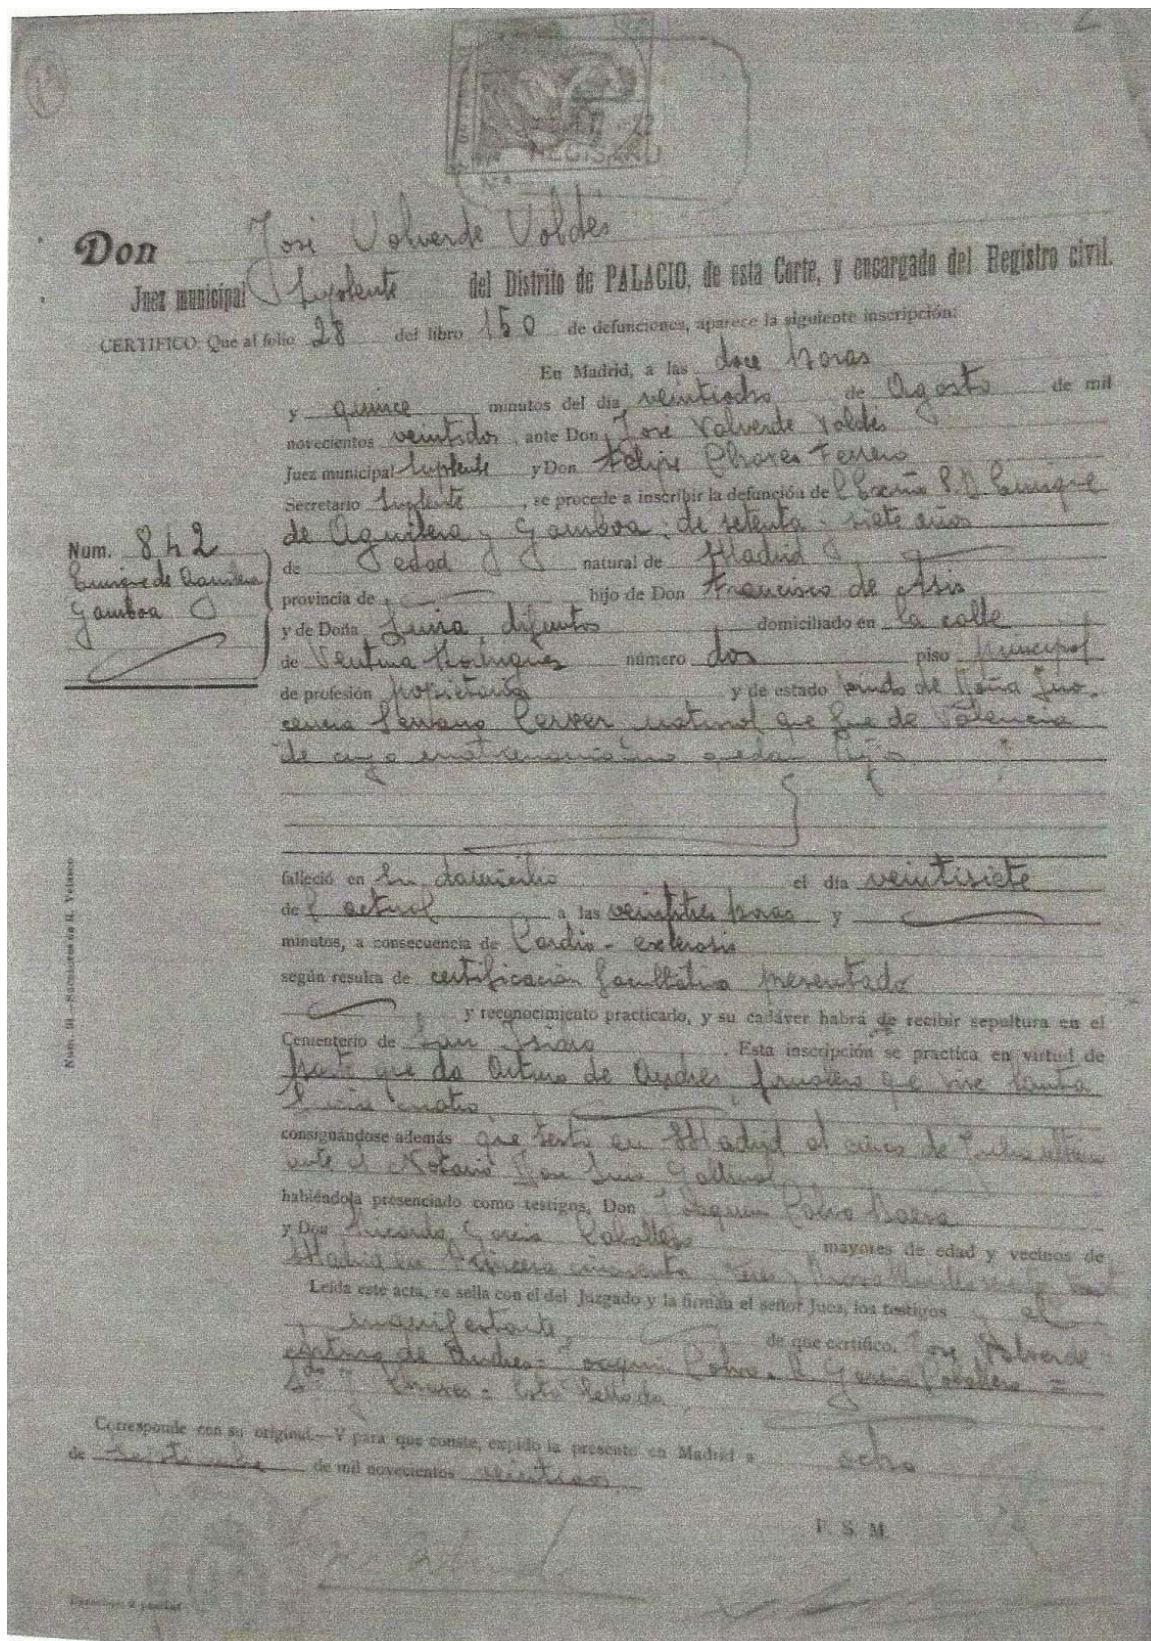 Don José Valverde Valdés
Juez municipal Suplente del Distrito de PALACIO, de esta Corte, y encargado del Registro civil.
CERTIFICO: Que al folio 28 del libro 150 de defunciones, aparece la siguiente inscripción:
En Madrid, a las doce horas
y quince minutos del día veintiocho de Agosto de mil
novecientos veintidos, ante Don José Valverde Valdés
Juez municipal Suplente y Don Felipe Chaves Ferrero
Secretario Suplente, se procede a inscribir la defunción de Excmo S. D. Enrique
de Aguilera y Gamboa; de setenta y siete años
de edad natural de Madrid
provincia de hijo de Don Francisco de Asis
y de Doña Luisa, difuntos domiciliado en la calle
de Ventura Rodriguez número dos piso principal
de profesión propietario y de estado viudo de Doña Ino-
cencia Serrano Cerver natural que fue de Valencia
de cuyo matrimonio no quedan hijos
Num. 842
Enrique de Aguilera
Gamboa
falleció en su domicilio el día veintisiete
del actual a las veintitres horas y
minutos, a consecuencia de Cardio-esclerosis
según resulta de certificación facultativa presentada
y reconocimiento practicado, y su cadáver habrá de recibir sepultura en el
Cementerio de San Isidro. Esta inscripción se practica en virtud de
parte que da Arturo de Andres, que vive Santa
Lucia cuatro,
consignándose además que testó en Madrid el cinco de Julio
ante el Notario Don Luis Gallinal,
habiéndola presenciado como testigos, Don Joaquin Calvo
y Don Ricardo Garcia Caballero mayores de edad y vecinos de
Madrid en Princesa cincuenta
Leída este acta, se sella con el del Juzgado y la firman el señor Juez, los testigos y el
manifestante, de que certifico. José Valverde
Arturo de Andres = Joaquin Calvo. R Garcia Caballero =
F. Chaves = Está Sellado.
Corresponde con su original.—Y para que conste, expido la presente en Madrid a ocho
de Septiembre de mil novecientos veintidos
P. S. M.
Núm. 51.—Sucesores de R. Velasco